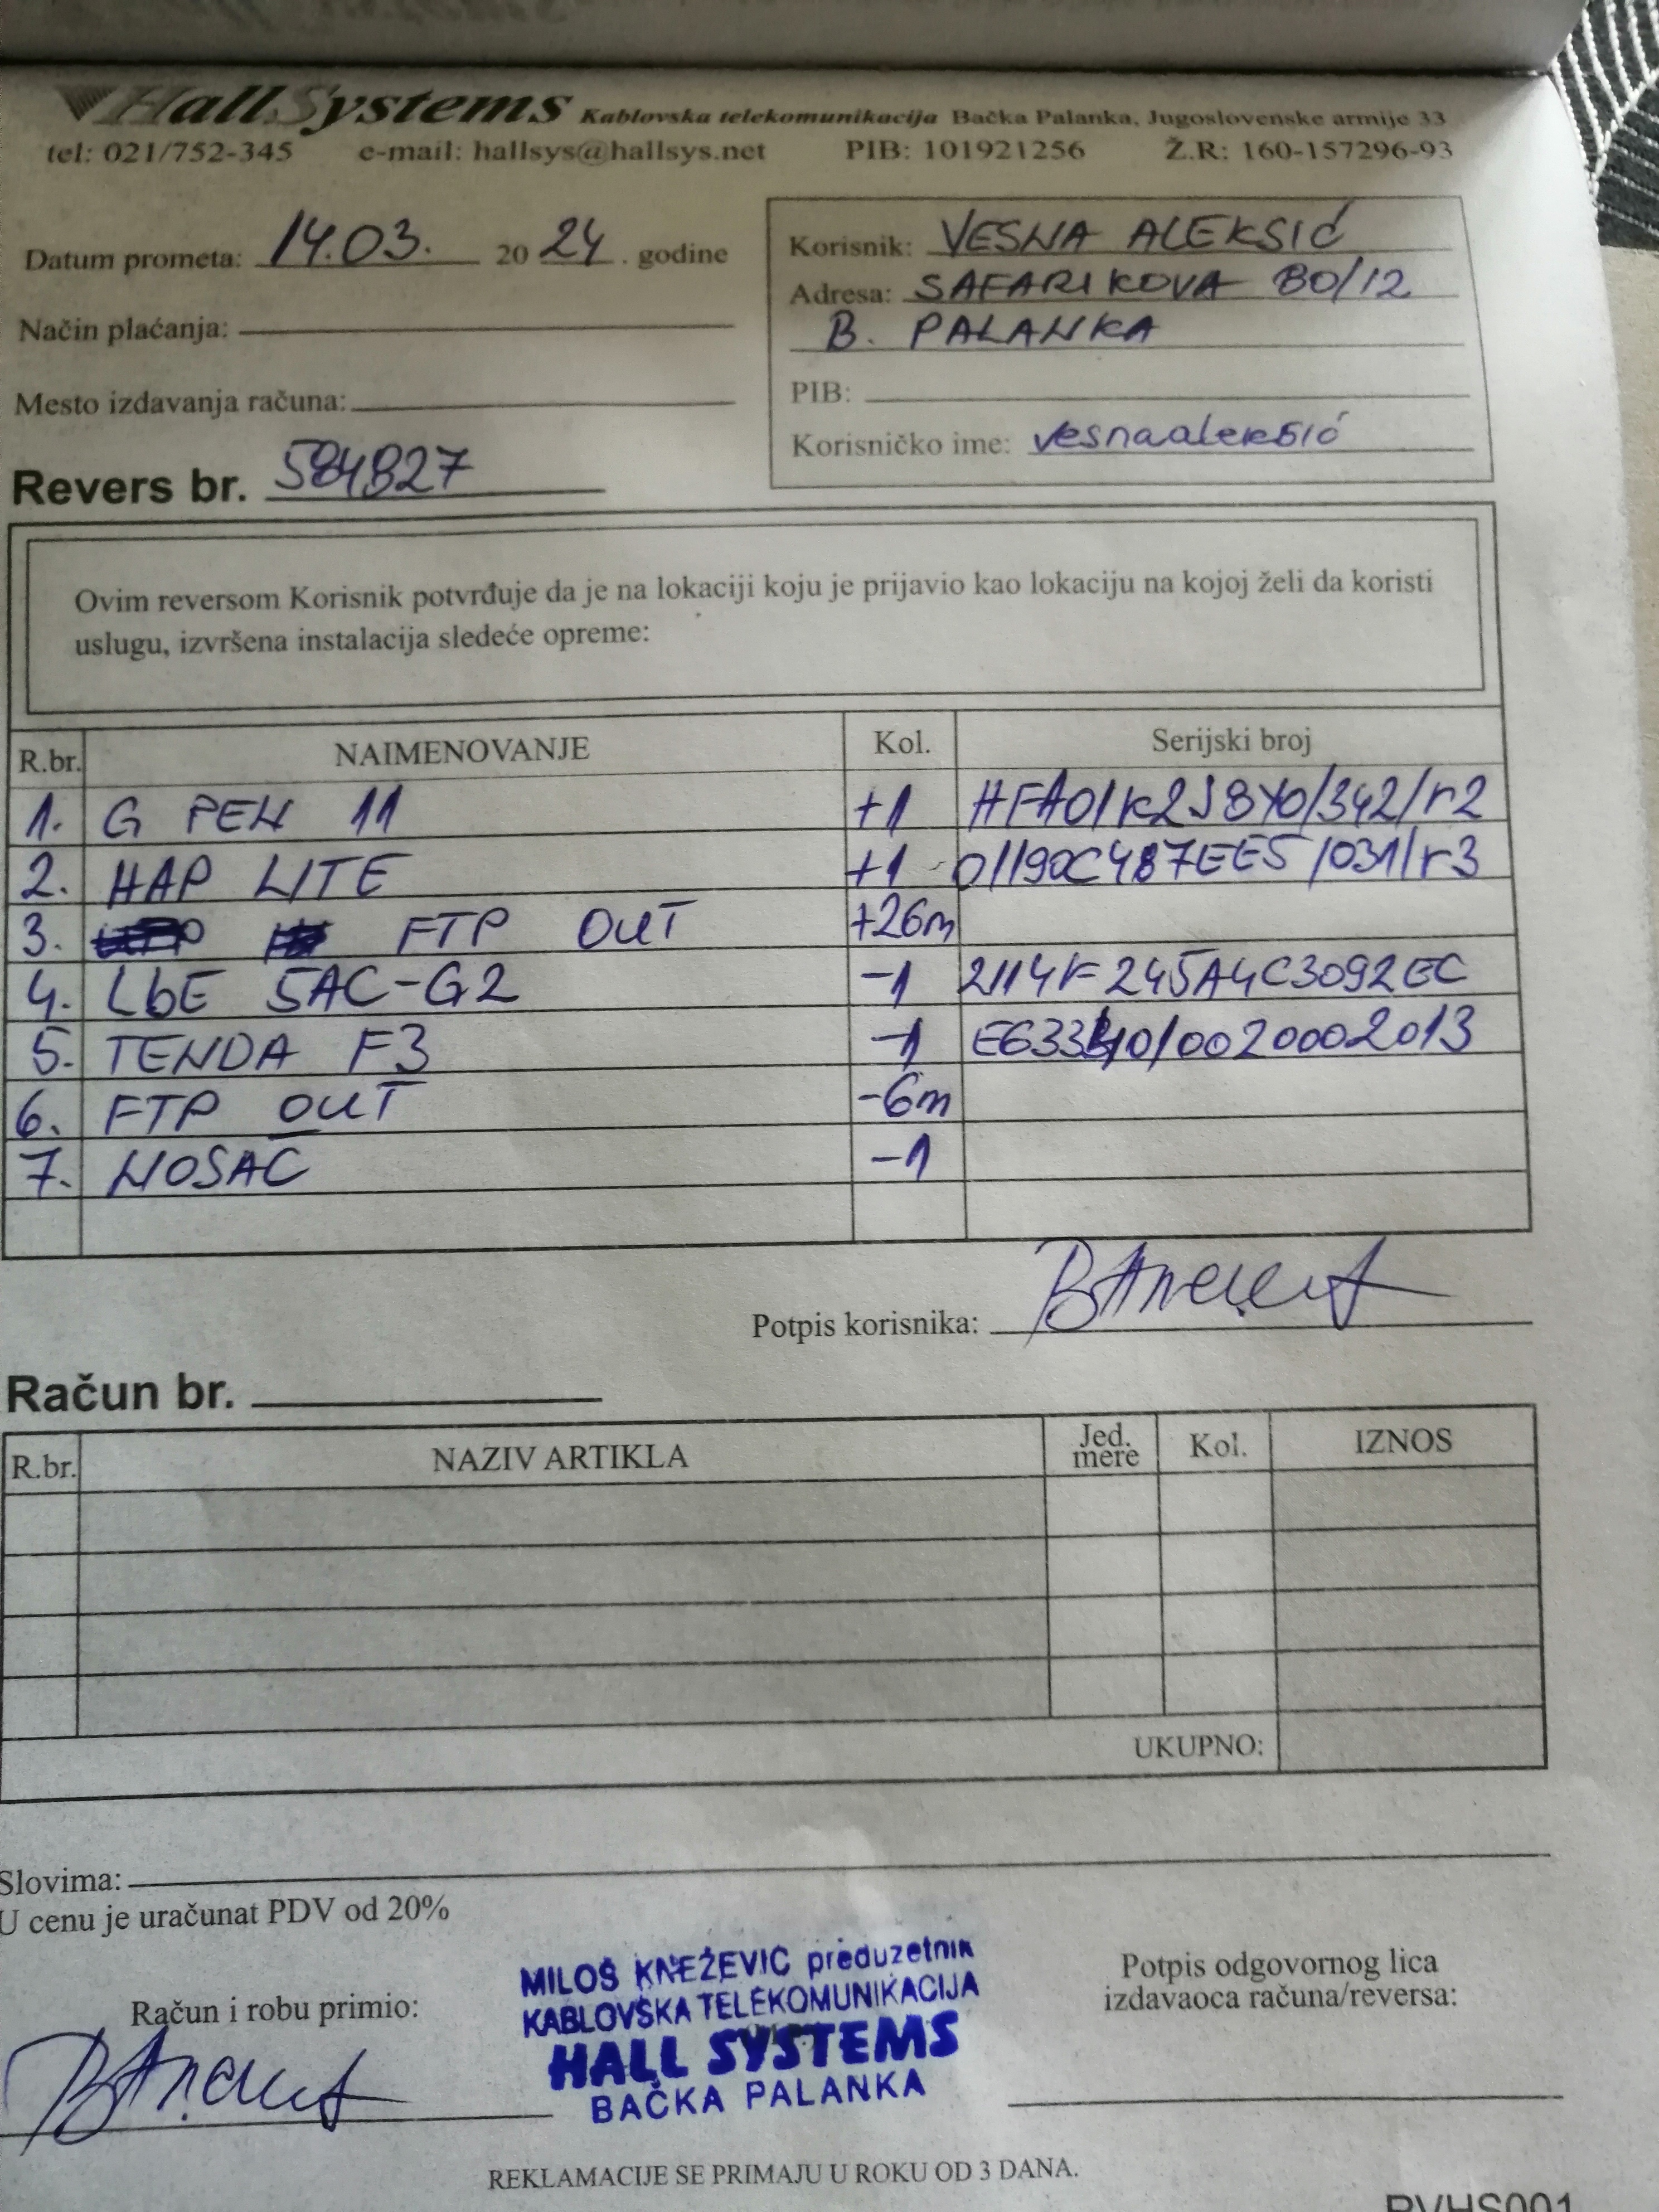 HallSystems Kablovska telekomunikacija Bačka Palanka, Jugoslovenske armije 33
tel: 021/752-345 e-mail: hallsys@hallsys.net PIB: 101921256 Ž.R: 160-157296-93
Datum prometa: 14.03. 2024. godine
Korisnik: VESNA ALEKSIĆ
Adresa: SAFARIKOVA 80/12
B. PALANKA
Način plaćanja:
PIB:
Mesto izdavanja računa:
Korisničko ime: vesnaaleksić
Revers br. 584827
Ovim reversom Korisnik potvrđuje da je na lokaciji koju je prijavio kao lokaciju na kojoj želi da koristi
uslugu, izvršena instalacija sledeće opreme:
R.br. NAIMENOVANJE Kol. Serijski broj
1. G PEN 11 +1 HFA01K2J8Y0/342/r2
2. HAP LITE +1 01190C487EE5/031/r3
3. FTP OUT +26m
4. LbE 5AC-G2 -1 2114K245A4C3092EC
5. TENDA F3 -1
6. FTP OUT -6m
7. NOSAC -1
Potpis korisnika:
Račun br.
R.br. NAZIV ARTIKLA Jed. mere Kol. IZNOS
UKUPNO:
Slovima:
U cenu je uračunat PDV od 20%
MILOŠ KNEŽEVIĆ preduzetnik
KABLOVSKA TELEKOMUNIKACIJA
HALL SYSTEMS
BAČKA PALANKA
Račun i robu primio:
Potpis odgovornog lica
izdavaoca računa/reversa:
REKLAMACIJE SE PRIMAJU U ROKU OD 3 DANA.
RVHS001